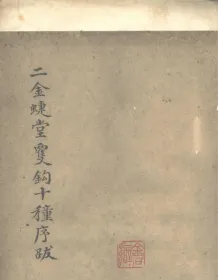 二金蜨堂雙鈎十種序跋